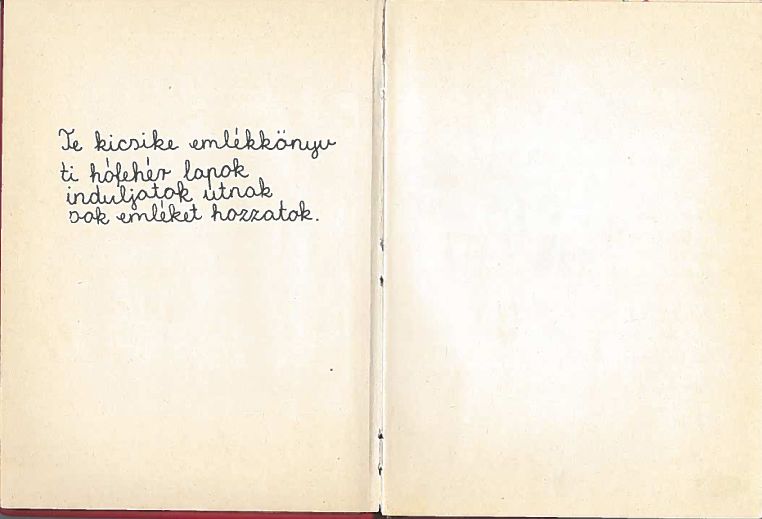 Te kicsike emlékkönyv
ti hófehér lapok
induljatok útnak
sok emléket hozzatok.